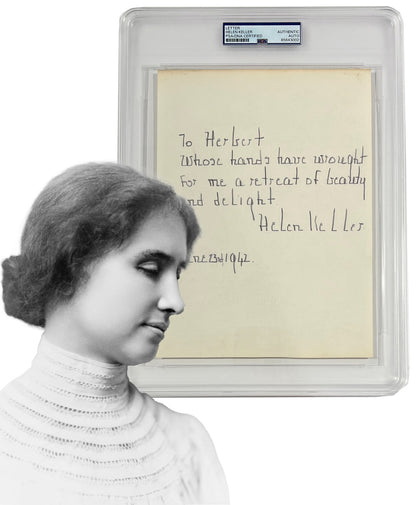 LETTER AUTHENTIC
HELEN KELLER AUTO
PSA/DNA CERTIFIED
To Herbert
Whose hands have wrought
For me a retreat of beauty
and delight
Helen Keller
23rd 1942.